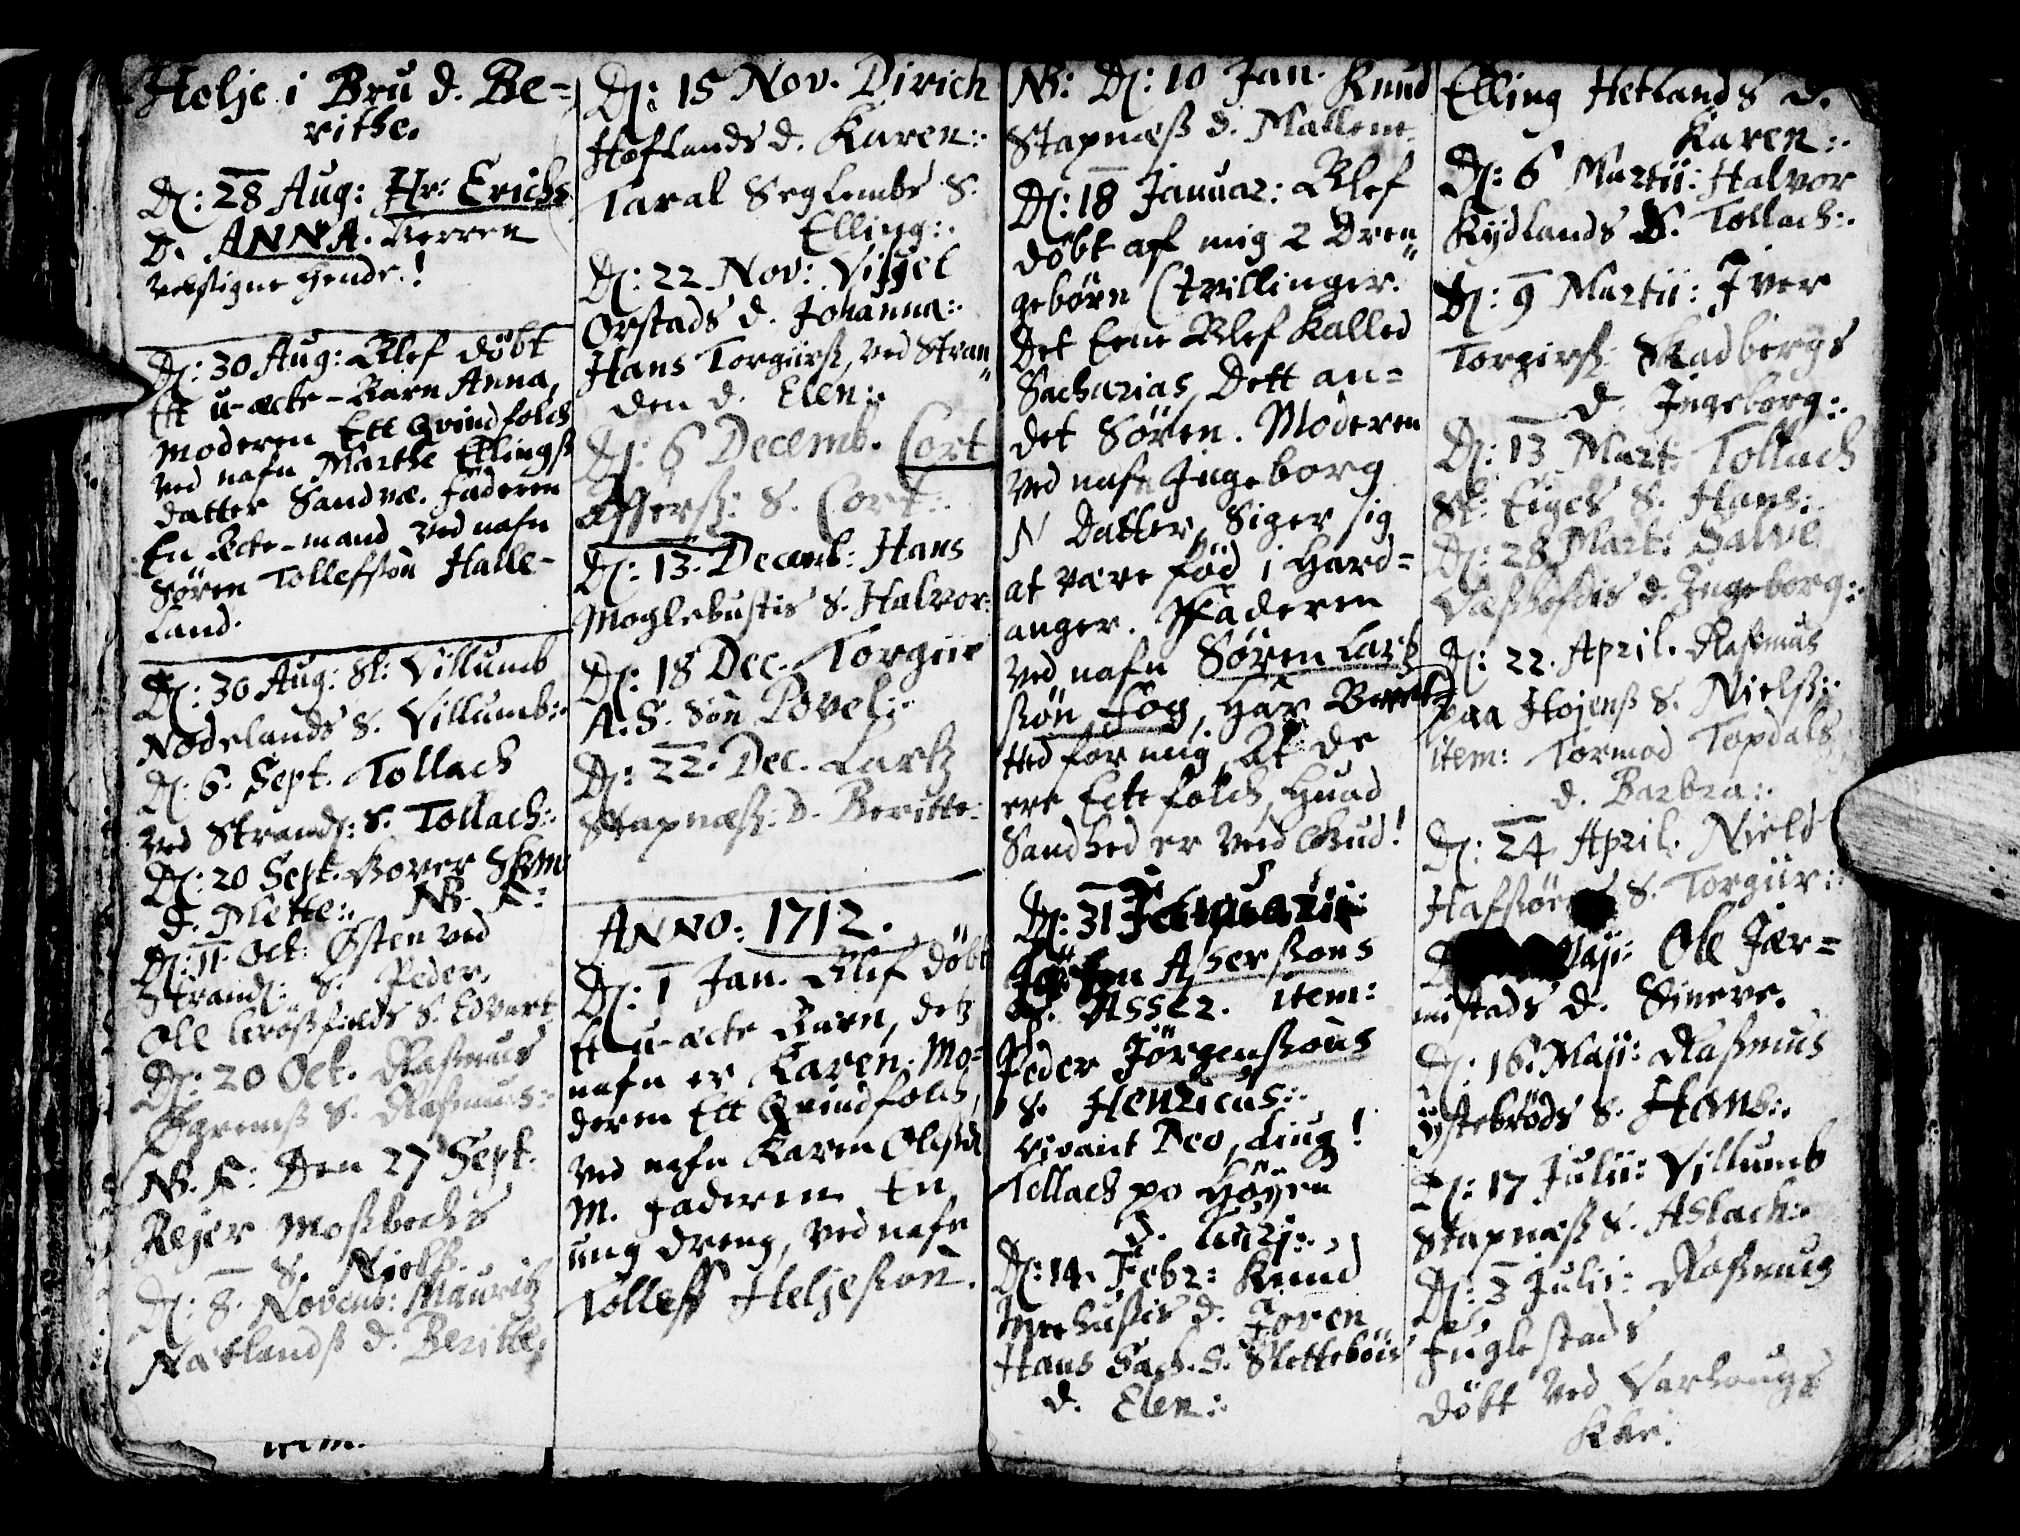 Helje i Bru d. Be-
rithe.
D: 28 Aug: Hr: Erichs
D. ANNA. Herren
velsigne hende.!
D: 30 Aug: Blef döbt
Ett u-ecte-Barn Anna,
Moderen Ett Qvindfolch
ved nafn Marthe Ellings
datter Sandvæ. Faderen
En Ecte-mand ved nafn
Sören Tollefsson Halle-
land.
D: 30 Aug: Sl: Villumb
Nodelands S. Villumb:.
D: 6. Sept. Tollach
ved Strand: S. Tollach:.
D: 20 Sept.
d. Mette:. NB. F:
D: 11 Oct: Østen ved
Strand: S. Peder.
Ole S. Edvert
D: 20 Oct. Rasmus
Egrems S. Rasmus:.
NB. F: Den 27 Sept.
Rejer Mosbechs
S. Niels.
D: 8. Novemb: Mauritz
Nætlands d. Beritte,
D: 15 Nov. Dirich
Hoflands d. Karen:.
Taral Seglembs S.
Elling:.
D: 22 Nov:
Orstads d. Johanna:.
Hans Torgiirs, ved Stran"
den d. Elen:.
D: 6 Decemb. Cort
Assers: S. Cort:.
D: 13. Decemb: Hans
Moglebustis S. Halvor:
D: 18 Dec. Torgiir
A. S. Sön Povel:.
D: 22. Dec. Lartz
Stapnæs: D. Beritte:
ANNO: 1712.
D: 1 Jan. Blef döbt
Et u-ecte Barn, detz
nafn er Karen. Mo-
deren Ett Qvindfolch,
ved nafn Karen
M. Faderen En
ung dreng, ved nafn
Tolleff Heljesson.
NB: D: 10 Jan. Knud
Stapnæs d. Mallene
D: 18 Januar: Blef
döbt af mig 2 Dren"
gebörn (tvillinger.
Det Eene Blef Kalled
Sacharias, Dett an-
det Sören. Moderen
ved nafn Ingeborg
N Datter, Siger sig
at være föd i Hard-
anger. Faderen
ved nafn Sören Lartz
sön Fog, har Beret-
ted for mig, At de
ere Ecte folch, Huad
Sandhed er veed Gud!
D: 31 Januarii:
Assersons
S. Asser. item:
Peder Jörgensöns
S. Henricus:.
vivant Deo, diug!
Tollach po Höyen
d.
D: 14. Febr: Knud
d. Joren
Hans Sach. S. Sletteböis
d. Elen:.
Elling Hetlands d.
Karen:.
D: 6 Martii: Halvor
Kydlands S. Tollach:.
D: 9 Martii: Iver
Torgirs: Skadbergs
d. Ingeborg:.
D: 13 Mart. Tollach
Sl: Eigels S. Hans:.
D: 28 Mart: Salve
d. Ingeborg:.
D: 22. April. Rasmus
paa Hojens S. Niels:.
item: Tormod Topdals
d. Barbra:.
D: 24 April. Niels
S. Torgiir:.
Maji: Ole Jær-
nistads d. Sineve.
D: 16. Maji: Rasmus
ystebröds S. Hemb:.
D: 17 Julii: Villumb
Stapnæs S. Aslach:.
D: 3 Julii: Rasmus
Fuglestads
döbt ved Varhougs
Kirc.